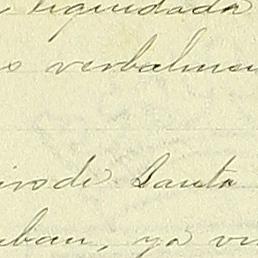 liquidada
verbalmen
de Santa
ban, ya vi